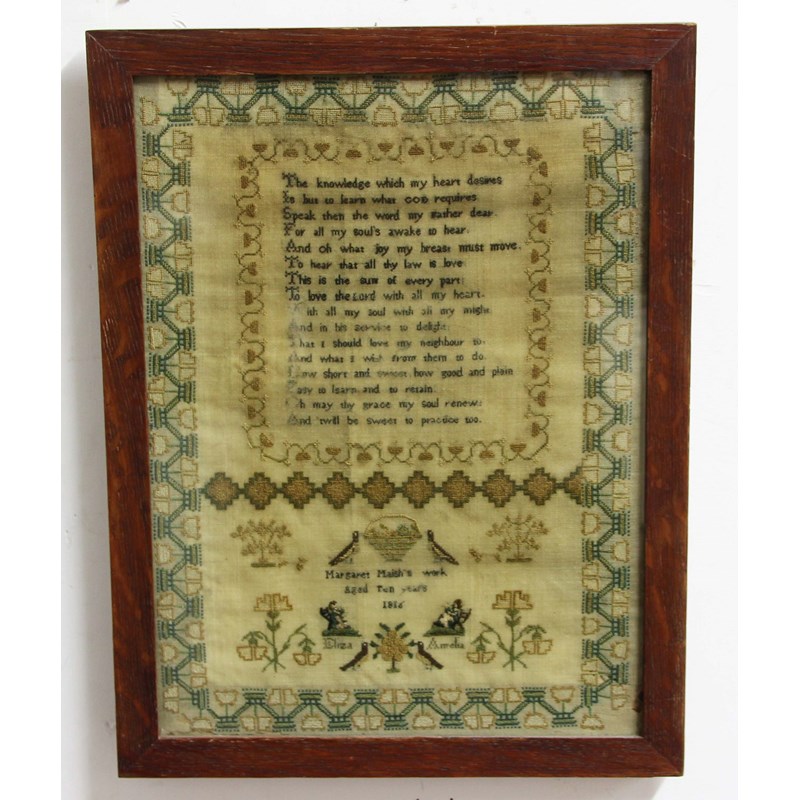 The knowledge which my heart desires
Is but to learn what GOD requires
Speak then the word my father dear
For all my soul's awake to hear.
And Oh what joy my breast must move,
To hear that all thy law is love
This is the sum of every part
To love the LORD with all my heart.
With all my soul with all my might
And in his service to delight
That I should love my neighbour to
And what I wish from them to do.
How short and sweet how good and plain
Easy to learn and to retain
Oh may thy grace my soul renew
And 'twill be sweet to practice too.
Margaret work
Aged Ten years
Eliza Amelia